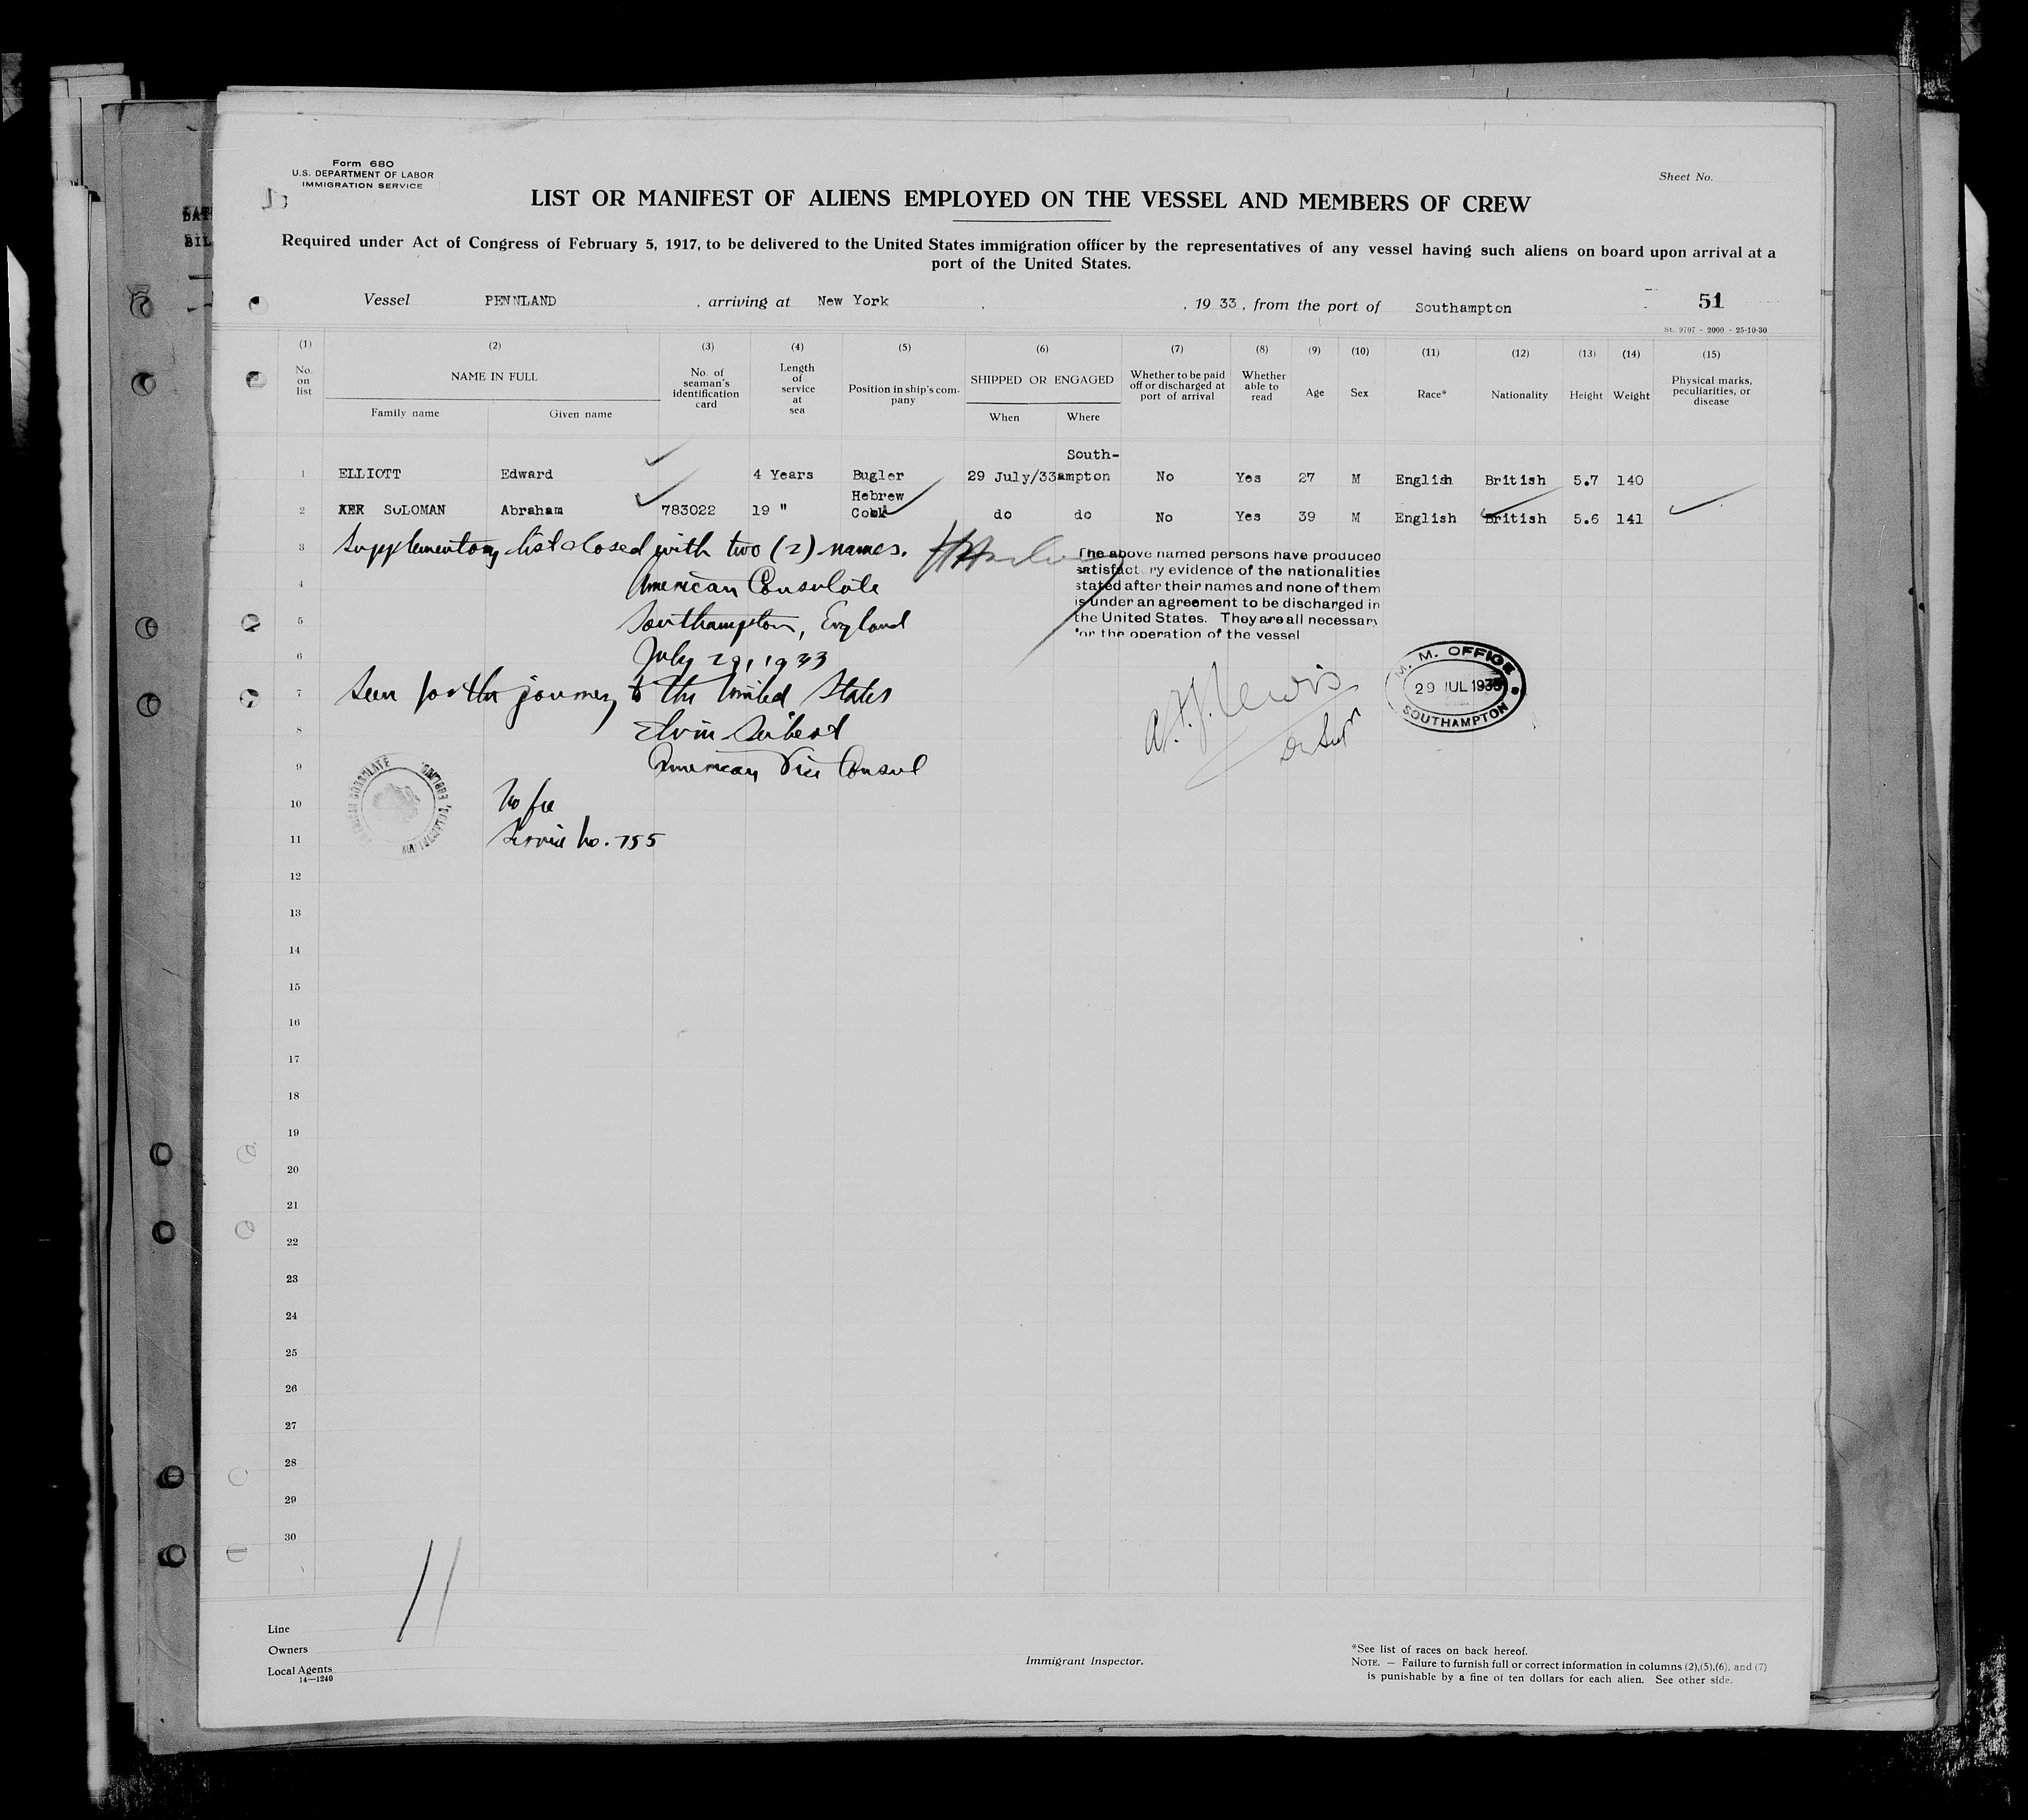 Form 680
U.S. DEPARTMENT OF LABOR
IMMIGRATION SERVICE
Sheet No.
LIST OR MANIFEST OF ALIENS EMPLOYED ON THE VESSEL AND MEMBERS OF CREW
Required under Act of Congress of February 5, 1917, to be delivered to the United States immigration officer by the representatives of any vessel having such aliens on board upon arrival at a
port of the United States.
Vessel PENNLAND , arriving at New York , 19 33 , from the port of Southampton 51
St. 9707 - 2000 - 25-10-30
(1) (2) (3) (4) (5) (6) (7) (8) (9) (10) (11) (12) (13) (14) (15)
No. on list NAME IN FULL Family name Given name No. of seaman's identification card Length of service at sea Position in ship's company SHIPPED OR ENGAGED When Where Whether to be paid off or discharged at port of arrival Whether able to read Age Sex Race* Nationality Height Weight Physical marks, peculiarities, or disease
1 ELLIOTT Edward 4 Years Bugler 29 July/33 South-ampton No Yes 27 M English British 5.7 140
2 SOLOMAN Abraham 783022 19 " Hebrew Cook do do No Yes 39 M English British 5.6 141
3 Supplementary list closed with two (2) names.
The above named persons have produced
satisfact ry evidence of the nationalities
stated after their names and none of them
is under an agreement to be discharged in
the United States. They are all necessary
for the operation of the vessel
4 American Consulate
5 Southampton, England
6 July 29, 1933
7 Seen for the journey to the United States
8 Elvin Seibert
9 American Vice Consul
A. J. Lewis
M. M. OFFICE
29 JUL 1933
SOUTHAMPTON
AMERICAN CONSULATE
10 No fee
11 Service No. 755
12
13
14
15
16
17
18
19
20
21
22
23
24
25
26
27
28
29
30
11
Line
Owners
Local Agents
14—1240
Immigrant Inspector.
*See list of races on back hereof.
NOTE. — Failure to furnish full or correct information in columns (2),(5),(6), and (7)
is punishable by a fine of ten dollars for each alien. See other side.